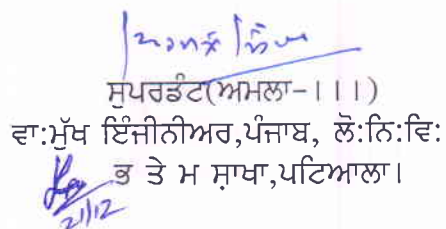 ਸੁਪਰਡੰਟ(ਅਮਲਾ-।।।)
ਵਾ:ਮੁੱਖ ਇੰਜੀਨੀਅਰ,ਪੰਜਾਬ, ਲੋ:ਨਿ:ਵਿ:
ਭ ਤੇ ਮ ਸ਼ਾਖਾ,ਪਟਿਆਲਾ।
21/12